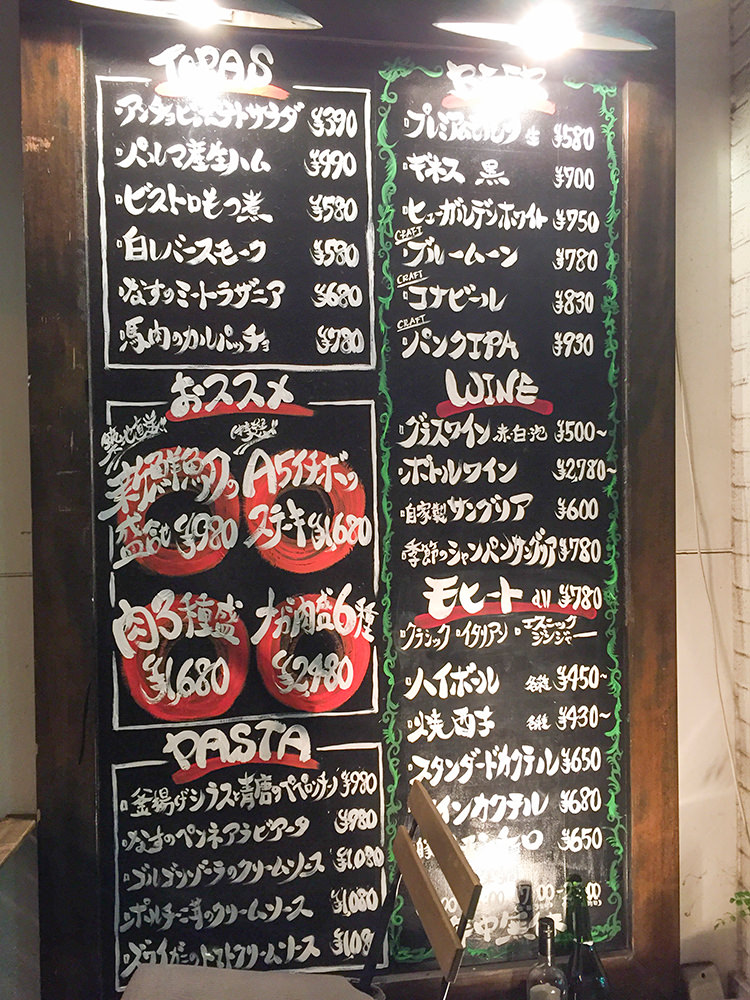 TAPAS
アンチョビポテトサラダ ¥390
パルマ産生ハム ¥990
ビストロもつ煮 ¥580
白レバースモーク ¥580
なすのミートラザニア ¥680
馬肉のカルパッチョ ¥780
おススメ
築地直送!!
新鮮魚介の
盛合せ ¥980
A5イチボ
ステーキ ¥1,680
肉3種盛
¥1,680
ナガ肉盛6種
¥2,480
PASTA
釜揚げシラスと青唐のペペロンチーノ ¥980
なすのペンネアラビアータ ¥980
ゴルゴンゾーラのクリームソース ¥1,080
ポルチーニ茸のクリームソース ¥1,080
ズワイガニのトマトクリームソース ¥1,08
BEER
プレミアムモルツ 生 ¥580
ギネス 黒 ¥700
ヒューガルデンホワイト ¥950
CRAFT
ブルームーン ¥780
CRAFT
コナビール ¥830
CRAFT
パンクIPA ¥930
WINE
グラスワイン 赤・白・泡 ¥500~
ボトルワイン ¥2,780~
自家製サングリア ¥600
季節のシャンパンサングリア ¥780
モヒート all ¥780
クラシック イタリアン エスニックジンジャー
ハイボール 各種 ¥450~
焼酎 各種 ¥430~
スタンダードカクテル ¥650
ワインカクテル ¥680
¥650